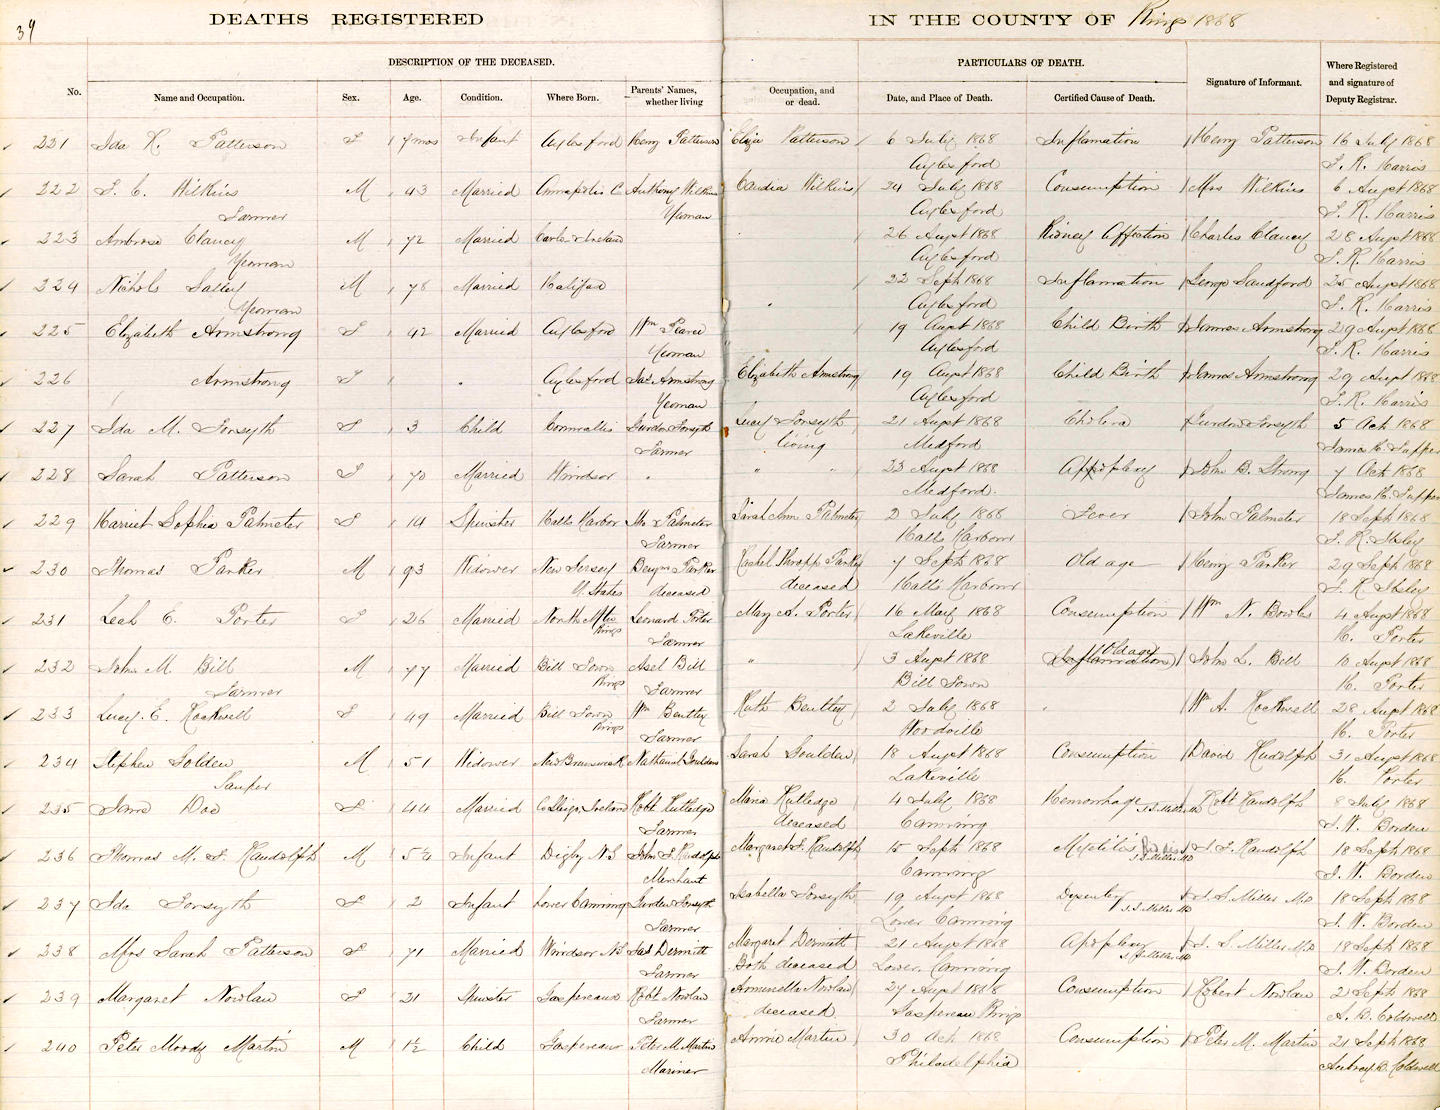 34
DEATHS REGISTERED IN THE COUNTY OF Kings 1868
DESCRIPTION OF THE DECEASED. PARTICULARS OF DEATH.
No. Name and Occupation. Sex. Age. Condition. Where Born. Parents' Names, whether living Occupation, and or dead. Date, and Place of Death. Certified Cause of Death. Signature of Informant. Where Registered and signature of Deputy Registrar.
221 Ida K. Patterson F 7 mos Infant Aylesford Henry Patterson Eliza Patterson 6 July 1868 Inflamation Henry Patterson 16 July 1868
Aylesford S. R. Harris
222 S. C. Wilkins M 43 Married Annapolis C. Anthony Wilkins Candia Wilkins 24 July 1868 Consumption Mrs Wilkins 6 Augst 1868
Farmer Yeoman Aylesford S. R. Harris
223 Ambrose Clancy M 72 Married Ireland 26 Augst 1868 Kidney Affection Charles Clancy 28 Augst 1868
Yeoman Aylesford S. R. Harris
224 Nichols Salley M 78 Married Halifax 22 Sept 1868 Inflamation George Sandford 25 Augst 1868
Yeoman Aylesford S. R. Harris
225 Elizabeth Armstrong F 42 Married Aylesford Wm Pearce 19 Augst 1868 Child Birth James Armstrong 29 Augst 1868
Yeoman Aylesford S. R. Harris
226 Armstrong F Aylesford Jas Armstrong Elizabeth Armstrong 19 Augst 1868 Child Birth James Armstrong 29 Augst 1868
Yeoman Aylesford S. R. Harris
227 Ida M. Forsyth F 3 Child Cornwallis Gurdon Forsyth Lucy Forsyth 21 Augst 1868 Cholera Gurdon Forsyth 5 Oct 1868
Farmer living Medford James H. Tupper
228 Sarah Patterson F 70 Married Windsor " " 23 Augst 1868 Appoplexy John B. Strong 7 Oct 1868
Medford. James H. Tupper
229 Harriet Sophia Palmeter F 14 Spinster Halls Harbor Jno Palmeter Sarah Ann Palmeter 2 July 1868 Fever John Palmeter 18 Sept 1868
Farmer Halls Harbour
230 Thomas Parker M 93 Widower New Jersey Benjn Parker Rachel Thropp Parker 7 Sept 1868 Old age Henry Parker 29 Sept 1868
U. States deceased deceased Halls Harbour
231 Leah E. Porter F 26 Married North Mtn Leonard Porter May A. Porter 16 May 1868 Consumption Wm N. Bowles 4 Augst 1868
Kings Farmer Lakeville H. Porter
232 John M. Bill M 77 Married Bill Town Asel Bill " 3 Augst 1868 Inflamation Old age John L. Bill 10 Augst 1868
Farmer Kings Farmer Bill Town H. Porter
233 Lucy. E. Rockwell F 49 Married Bill Town Wm Bentley Ruth Bentley 2 July 1868 Wm A. Rockwell 28 Augst 1868
Kings Farmer Woodville H. Porter
234 Stephen Golden M 51 Widower New Brunswick Nathanal Gouldin Sarah Gouldin 18 Augst 1868 Consumption David Rudolph 31 Augst 1868
Pauper Lakeville H. Porter
235 Jane Doe F 44 Married Co Sligo, Ireland Robt Rutledge Maria Rutledge 4 July 1868 Hemorrhage J. S. Miller MD Robt Randolph 8 July 1868
Farmer deceased Canning J. W. Borden
236 Thomas M. F. Randolph M 5 Infant Digby N.S John F. Randolph Margaret F. Randolph 15 Sept 1868 J. S. Miller MD J. F. Randolph 18 Sept 1868
Merchant Canning J. W. Borden
237 Ida Forsyth F 2 Infant Lower Canning Gurden Forsyth Isabella Forsyth 19 Augst 1868 Dysentery J. S. Miller MD J. S. Miller M.D 18 Sept 1868
Farmer Lower Canning J. W. Borden
238 Mrs Sarah Patterson F 71 Married Windsor N.S Jas Dermitt Margaret Dermitt 21 Augst 1868 Apoplexy J. S. Miller MD J. S. Miller M.D 18 Sept 1868
Farmer Both deceased Lower Canning J. W. Borden
239 Margaret Nowlan F 21 Spinster Gaspereaux Robt Nowlan Armenella Nowlan 27 Augst 1868 Consumption Robert Nowlan 2 Sept 1868
Farmer deceased Gaspereau Kings A. D. Coldwell
240 Peter Moody Martin M 1½ Child Gaspereau Peter M. Martin Annie Martin 30 Oct 1868 Consumption Peter M. Martin 21 Sept 1868
Mariner Philadelphia Aubrey D. Coldwell